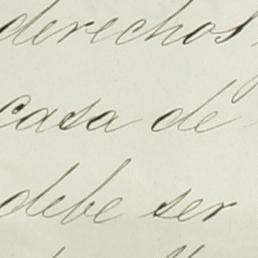 derechos
casa de
debe ser